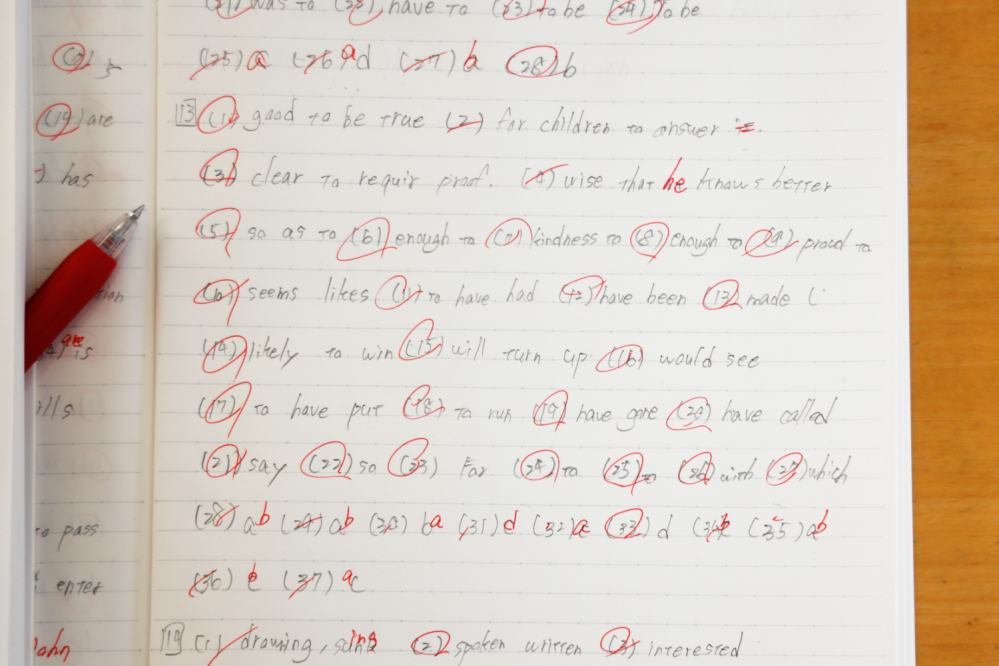 (21) was to (22) have to (23) to be (24) to be
(25) a (26) a d (27) b (28) b
(19) are
13 (1) good to be true (2) for children to answer
has
(3) clear to requir proof. (4) wise that he knows better
(5) so as to (6) enough to (7) kindness to (8) enough to (9) proud to
(10) seems likes (11) to have had (12) have been (13) made
are is
(14) likely to win (15) will turn up (16) would see
ills
(17) to have put (18) to run (19) have gone (20) have called
(21) say (22) so (23) for (24) to (25) to (26) with (27) which
to pass
(28) a b (29) a b (30) b a (31) d (32) a (33) d (34) b (35) a b
enter
(36) (37) a c
ohn
19 (1) drawing, ing (2) spoken written (3) interested